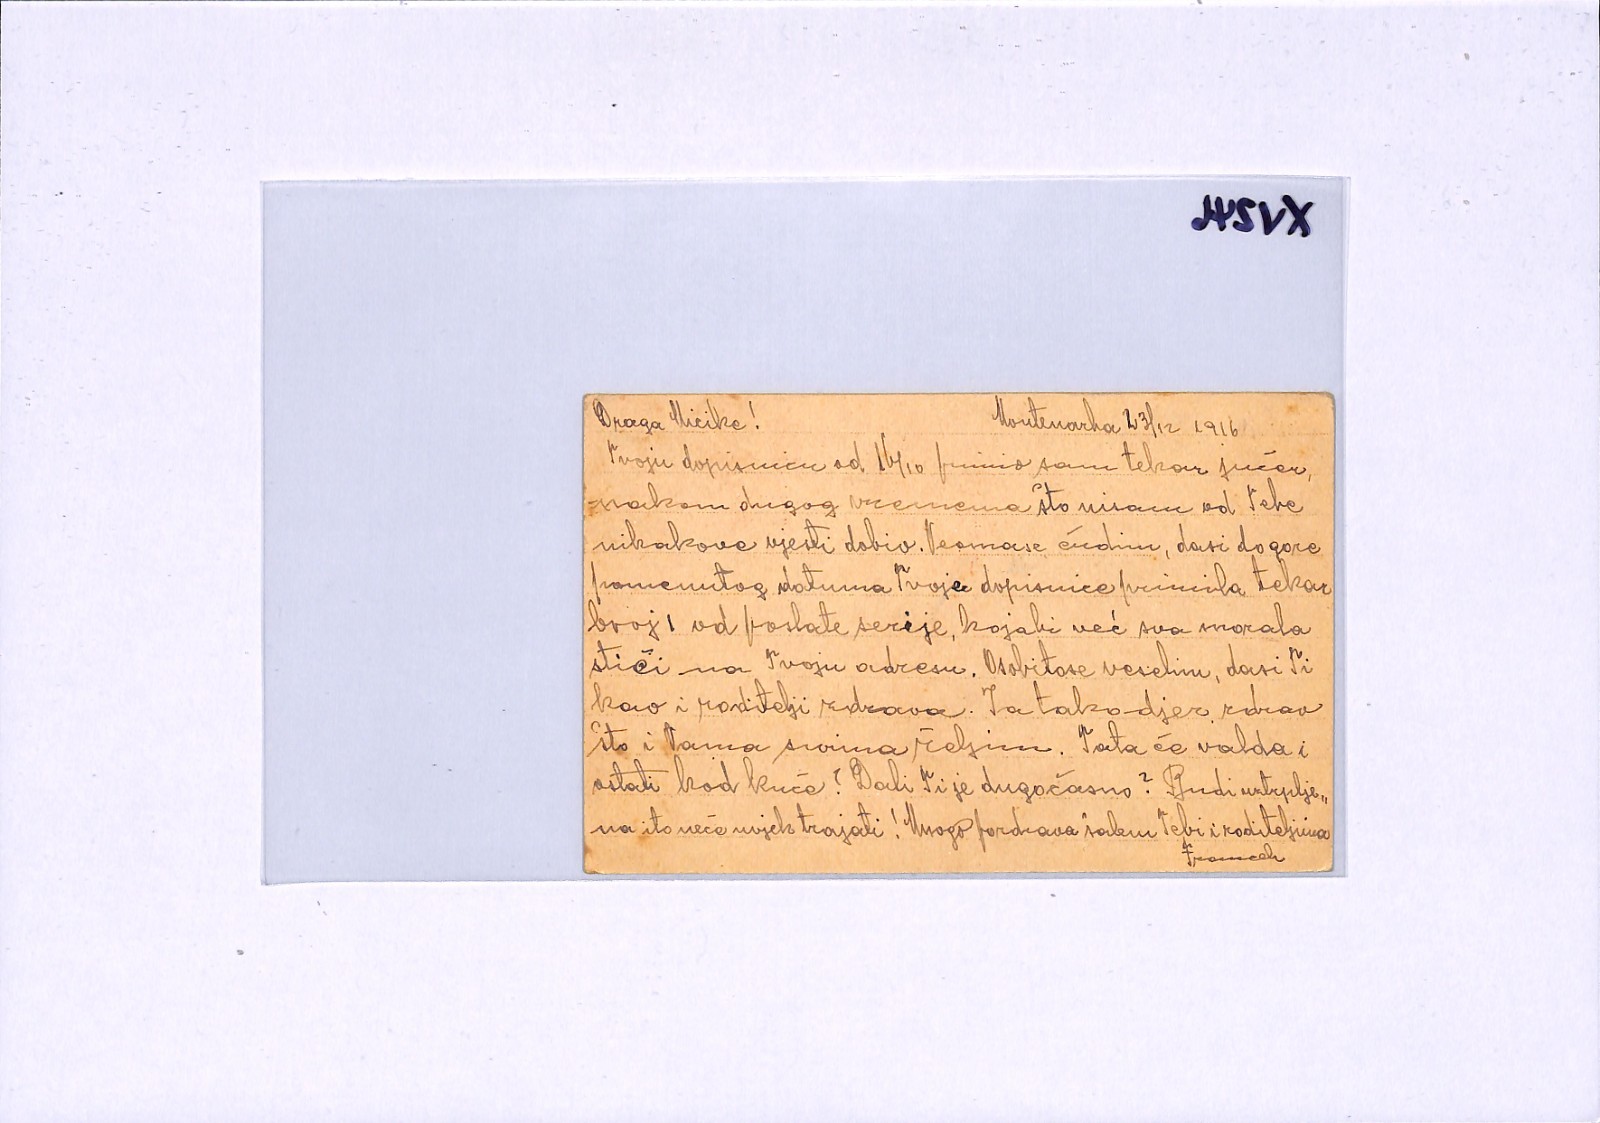 Draga Micike! Montenarha 23/12 1916
Tvoju dopisnicu od 16/10 primio sam tekar jučer,
nakon dugog vremena što nisam od Tebe
nikakove vjesti dobio. Veomase čudim, dasi dogore
pomenutog datuma Tvoje dopisnice primila tekar
broj 1 od poslate serije, kojabi već sva morala
stići na Tvoju adresu. Osobitose veselim, dasi Ti
kao i roditelji zdrava. Ja takodjer zdrav
što i Vama svima želim. Tata će valda i
ostati kod kuće? Dali Ti je dugočasno? Budi ustrplje„
na ito neće uvjek trajati! Mnogo pozdrava šalem Tebi i roditeljima